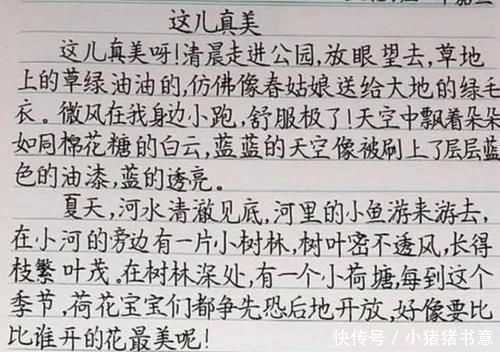 这儿真美
这儿真美呀!清晨走进公园,放眼望去,草地
上的草绿油油的,仿佛像春姑娘送给大地的绿毛
衣。微风在我身边小跑,舒服极了!天空中飘着朵朵
如同棉花糖的白云,蓝蓝的天空像被刷上了层层蓝
色的油漆,蓝的透亮。
夏天,河水清澈见底,河里的小鱼游来游去,
在小河的旁边有一片小树林,树叶密不透风,长得
枝繁叶茂。在树林深处,有一个小荷塘,每到这个
季节,荷花宝宝们都争先恐后地开放,好像要比
比谁开的花最美呢!
快传号/小猪猪书意